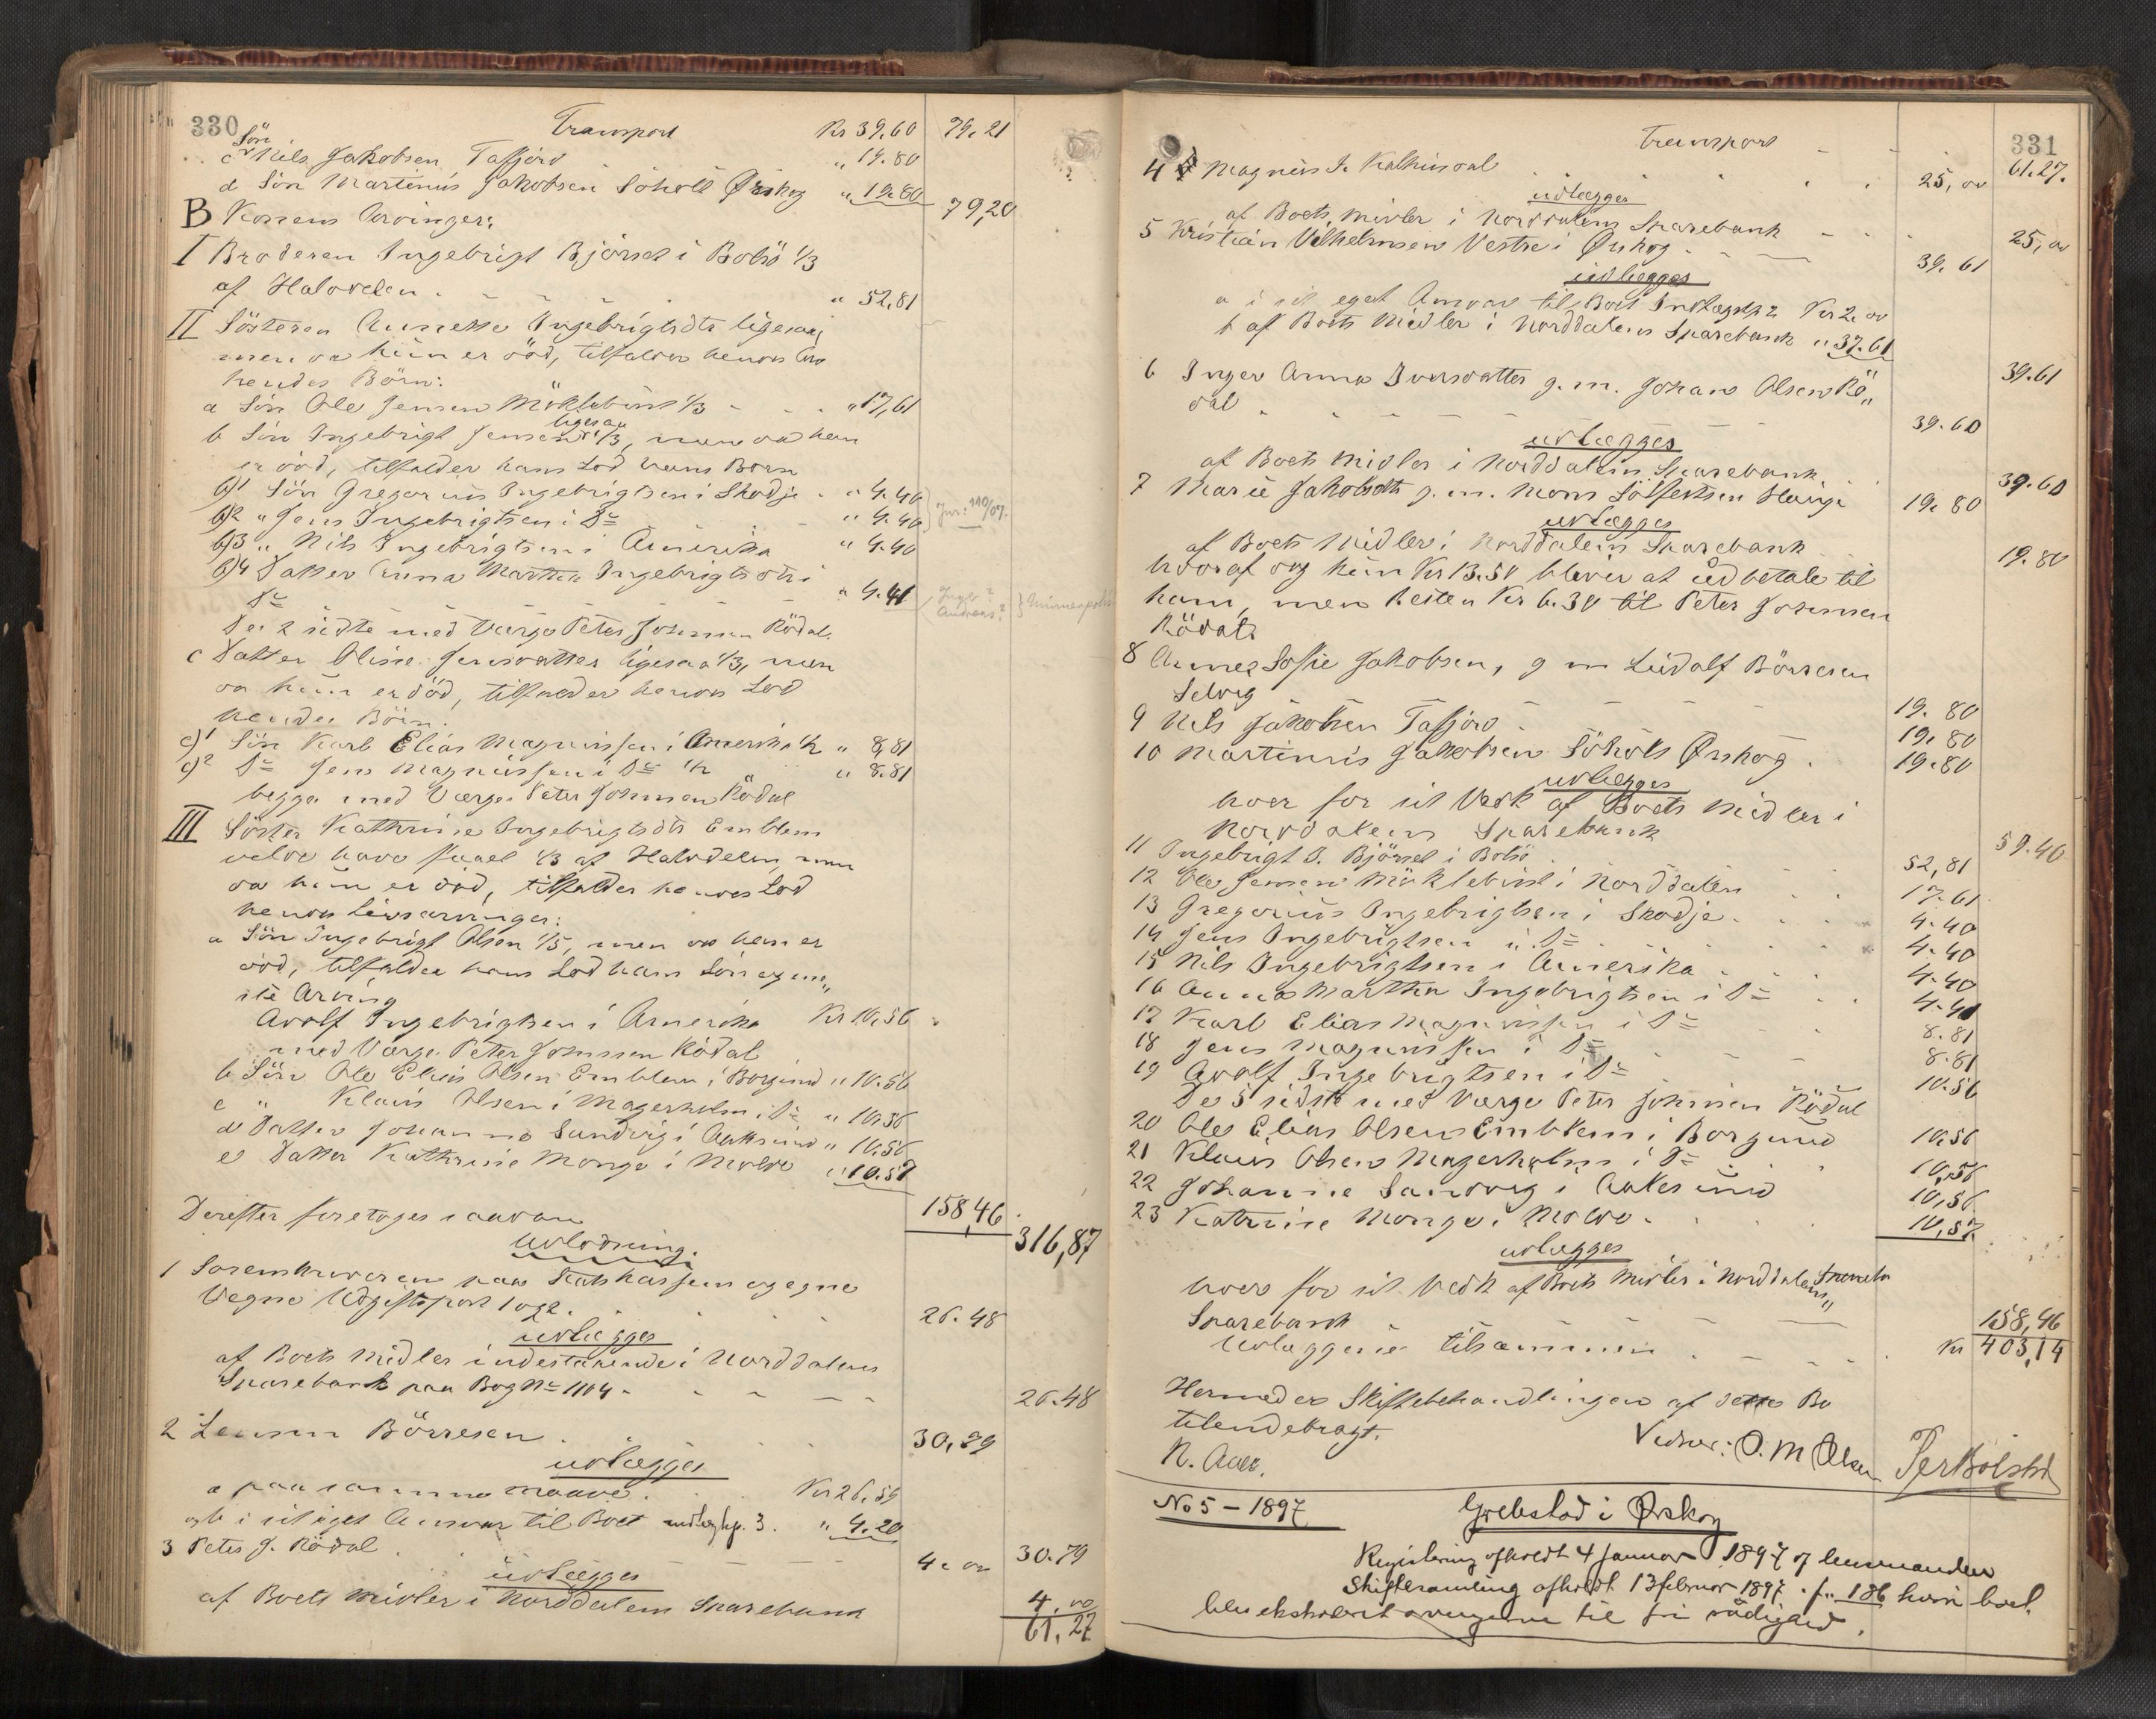 330 Transport Kr 39.60 79.21
c Sön Nils Jakobsen Tafjord " 19.80
d Sön Martinus Jakobsen Söholt Ørskog " 19.80 79,20
B Konens Arvinger:
I Broderen Ingebrigt Björset i Bolsö 1/3
af Halvdelen " 52,81
II Södsteren Ingebrigtsdtr ligesaa,
men da hun er död, tilfalder hendes
hendes Börn:
a Sön Ole Jensen Möklebust 1/3 " 17,61
b Sön Ingebrigt Jensen ligesaa 1/3, men da han
er död, tilfalder hans Lod hans Börn
b)1 Sön Gregorius Ingebrigtsen i Skodje " 4.40
b)2 " Jens Ingebrigtsen i Do " 4.40
b)3 " Nils Ingebrigtsen i Amerika " 4.40
b)4 Datter Anna Martha Ingebrigtsdtr i
Do " 4.41
De 2 sidste med Værge Peter Johnsen Rödal.
c Datter Oline Jensdatter ligesaa 1/3, men
da hun er död, tilfalder hendes Lod
hendes Börn:
c)1 Sön Karl Elias Magnussen i Amerika 1/2 " 8,81
c)2 Do Jens Magnussen i Do 1/2 " 8.81
begge med Værge Peter Johnsen Rödal
III Söster Kathrine Ingebrigtsdtr Emblem
vilde have faaet 1/3 af Halvdelen, men
da hun er död, tilfalder hendes Lod
hendes Livsarvinger:
a Sön Ingebrigt Olsen 1/5, men da han er
död, tilfalder hans Lod hans Sön og ene„
ste Arving
Adolf Ingebrigtsen i Amerika Kr 10,56
med Værge Peter Johnsen Rödal
b Sön Ole Elias Olsen Emblem i Borgund " 10.56
c " Klaus Olsen i Magerholm i Do " 10.56
d Datter Johanne Sandvig i Aakesund " 10.56
e Datter Kathrine Monge i Molde " 10.57
158,46
316,87
Derefter foretoges saadan
Udlodning.
1 Sorenskriveren paa Statskassens og egne
Vegne Udgiftspost 1 og 2. 26.48
udlægges
af Boets Midler indestaaende i Norddalens
Sparebank paa Bog No 1104 26.48
2 Lensm Börresen 30,79
udlægges
a paa samme Maade Kr 26,59
og b i sit eget Ansvar til Boet indtægtsp. 3. " 4.20
30.79
3 Peter J. Rödal 4. oo
udlægges
af Boets Midler i Norddalens Sparebank 4. oo
61,27
331
Transport 61.27.
4 Magnus J. Kalhusdal 25, oo
udlægges
af Boets Midler i Norddalens Sparebank 25, oo
5 Kristian Vilhelmsen Vestre i Ørskog 39.61
udlægges
a i sit eget Ansvar til Boet Indtægtsp 2 Kr 2. oo
b af Boets Midler i Norddalens Sparebank " 37.61
39.61
6 Inger Anna Iversdatter g. m. Johan Olsen Rö„
dal 39.60
udlægges
af Boets Midler i Norddalens Sparebank 39.60
7 Marie Jakobsdtr g. m. Mons 19.80
udlægges
af Boets Midler i Norddalens Sparebank 19.80
hvoraf dog kun Kr 13.50 bliver at udbetale til
ham, men Resten Kr 6.30 til Peter Johnsen
Rödal.
8 Anne Sofie Jakobsen, g m Ludolf Börresen
Selvig 19.80
9 Nils Jakobsen Tafjord 19.80
10 Martinus Jakobsen Söholt Ørskog 19.80
udlægges
hver for sit Vedk af Boets Midler i
Norddalens Sparebank 59.40
11 Ingebrigt I. Björset i Bolsö 52,81
12 Ole Jensen Möklebust i Norddalen 17.61
13 Gregorius Ingebrigtsen i Skodje 4.40
14 Jens Ingebrigtsen i Do 4.40
15 Nils Ingebrigtsen i Amerika 4.40
16 Anna Martha Ingebrigtsen i Do 4.41
17 Karl Elias Magnussen i Do 8.81
18 Jens Magnussen i Do 8.81
19 Adolf Ingebrigtsen i Do 10.56
De 5 sidste med Værge Peter Johnsen Rödal
20 Ole Elias Olsen Emblem i Borgund 10,56
21 Klaus Olsen Magerholm i Do 10,56
22 Johanne Sandvig i Aakesund 10,56
23 Kathrine Monge i Molde 10,57
udlægges
hver for sit Vedk af Boets Midler i Norddalens
Sparebank 158,46
Udlæggene tilsammen Kr 403,14
Hermed er Skiftebehandlingen af dette Bo
tilendebragt.
N. Aall.
Vidner: O. M Olsen Per Bölstad
No 5 - 1897 Grebstad i Ørskog
Registrering afholdt 4 Januar 1897 af lensmanden
Skiftesamling afholdt 13 februar 1897 f. 186 hvori boet
blev ekstraderet arvingerne til fri raadighed.